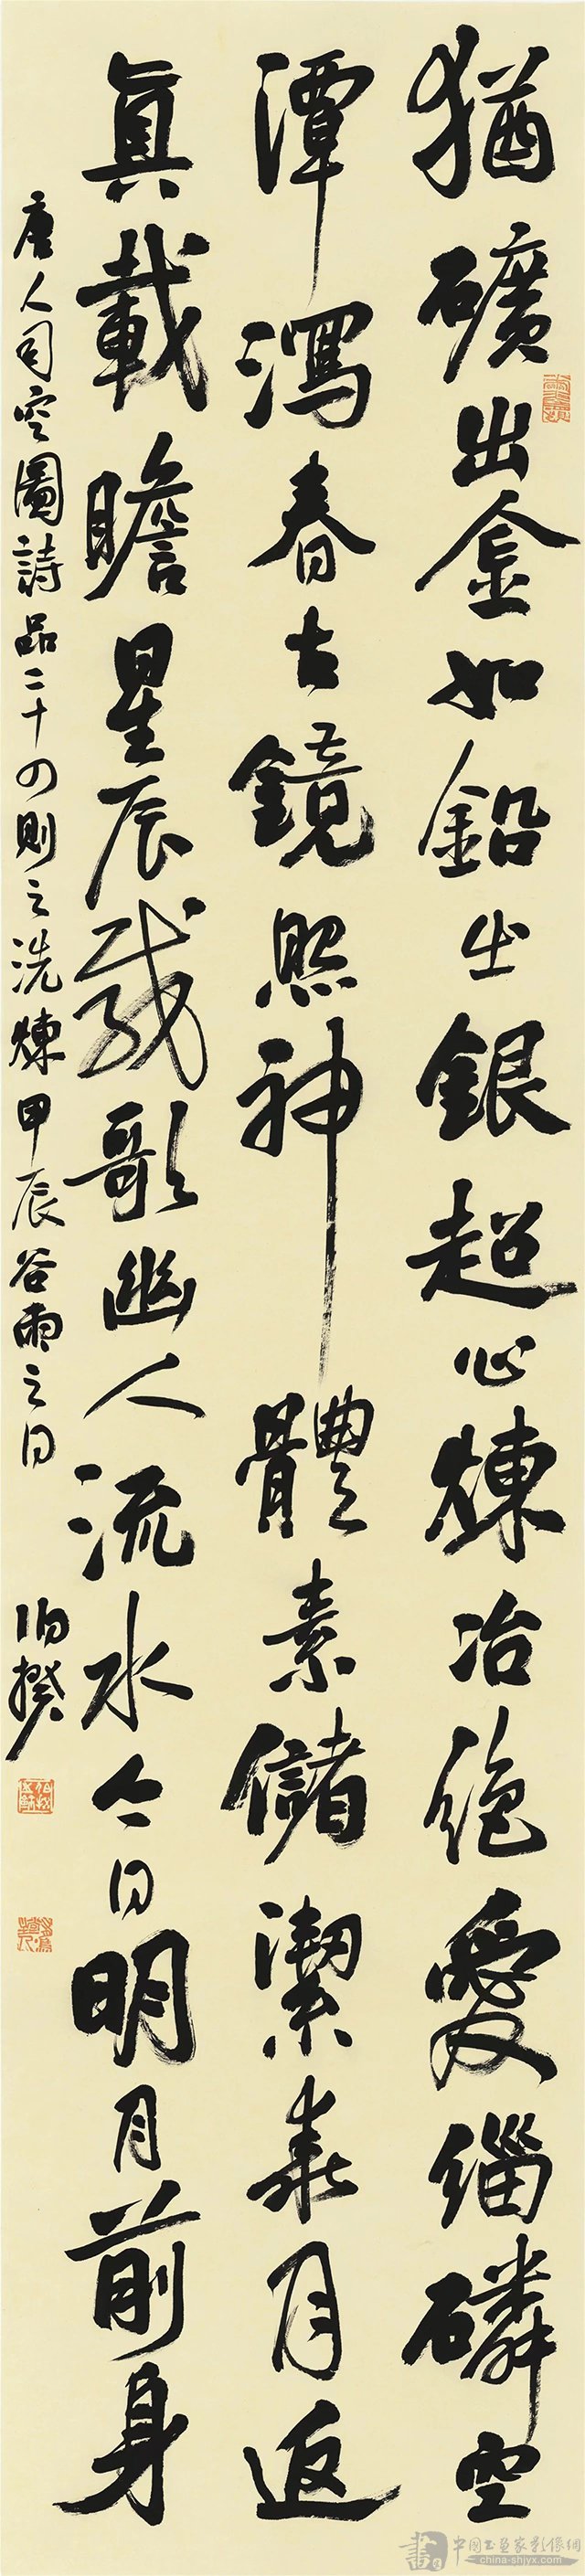 猶礦出金如鉛出銀超心煉冶絶愛緇磷空
潭瀉春古鏡照神體素儲潔乘月返
眞載瞻星辰載歌幽人流水今日明月前身
唐人司空圖詩品二十四則之洗煉甲辰谷雨之日
伯揆
中國书画家影像網
china-shjyx.com